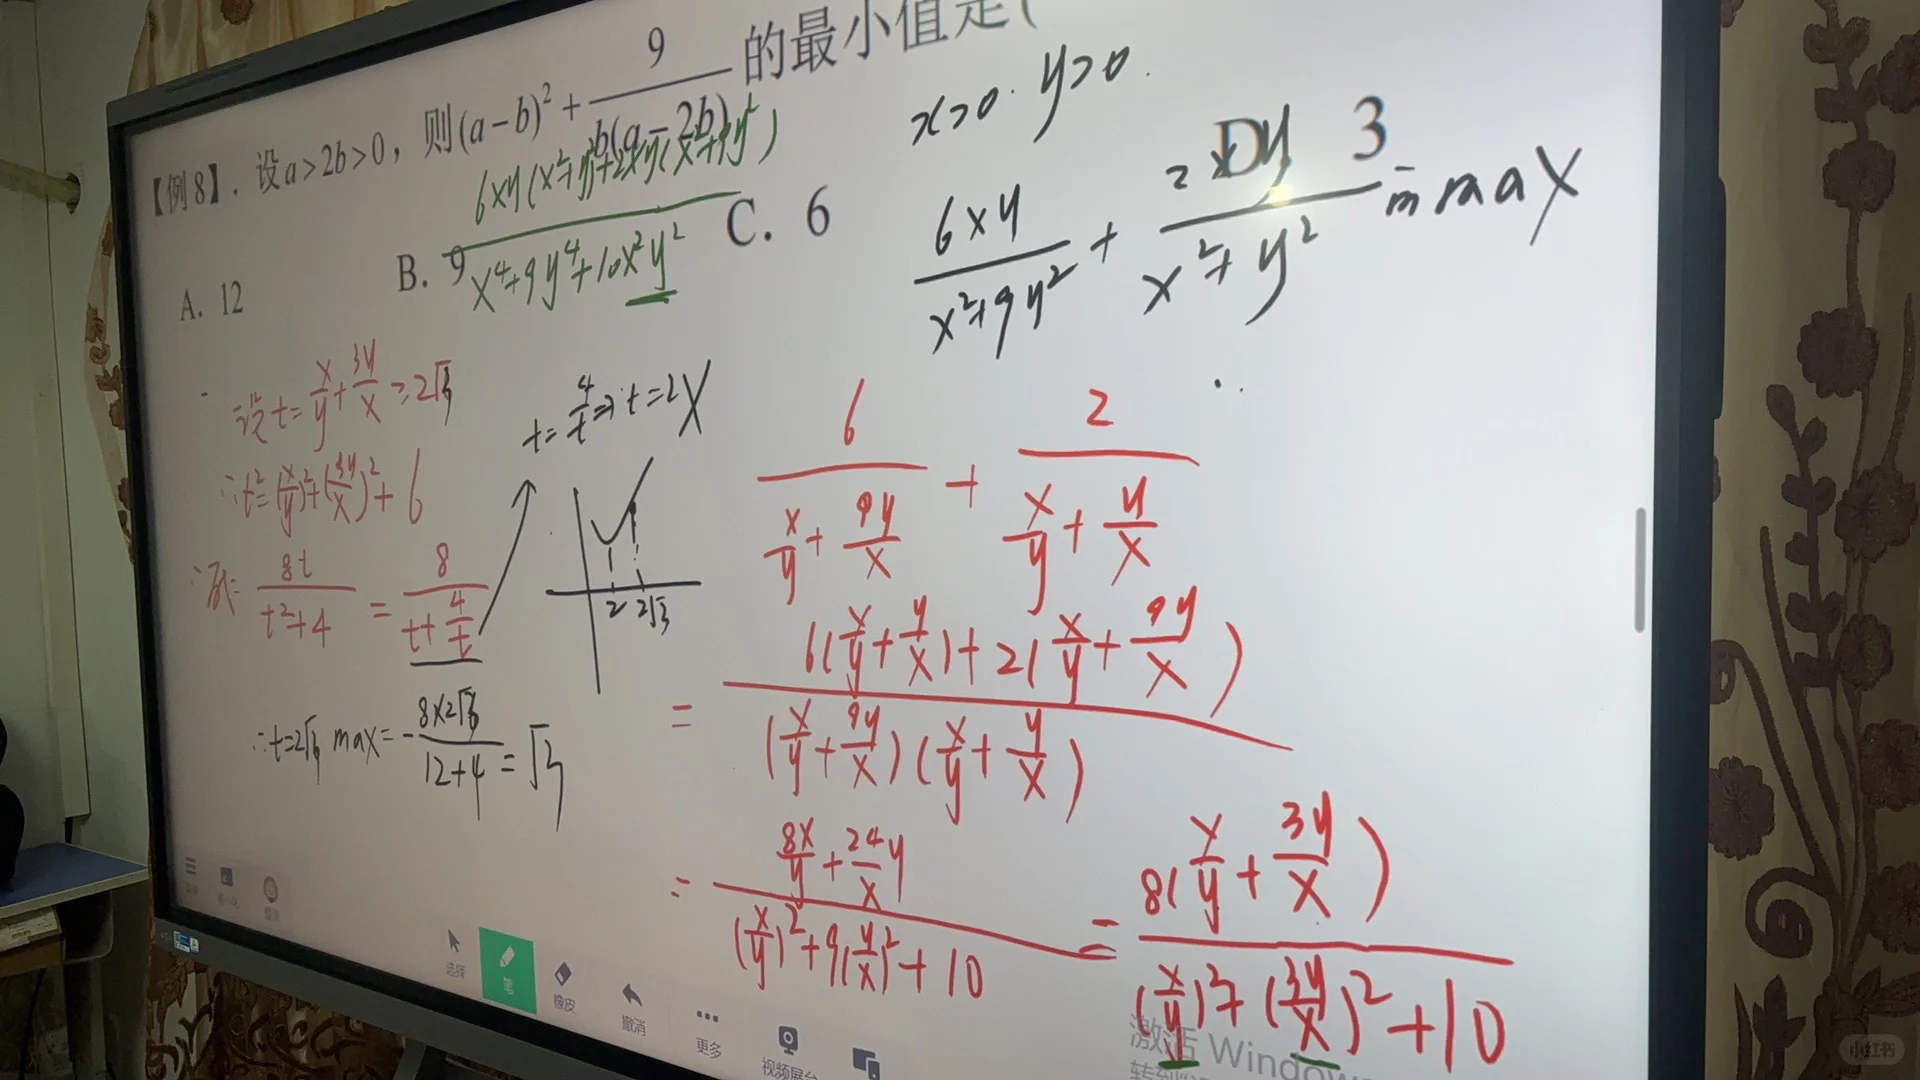 【例8】. 设a>2b>0, 则(a-b)²+9/b(a-2b)的最小值是(
A. 12
B. 9
C. 6
D 3
x>0. y>0.
6xy(x²+y²)+2xy(x²+9y²)/x⁴+9y⁴+10x²y²
6xy/x²+9y²+2xy/x²+y² max
设t=x/y+3y/x≥2√3
∴t²=(x/y)²+(3y/x)²+6
8t/t²+4=8/t+4/t
t=4/t⇒t=2 X
2 2√3
∴t=2√3 max=8×2√3/12+4=√3
6/x/y+9y/x+2/x/y+y/x
=6(x/y+y/x)+2(x/y+9y/x)/(x/y+9y/x)(x/y+y/x)
=8x/y+24/x y/(x/y)²+9(y/x)²+10=8(x/y+3y/x)/(x/y)²+(3y/x)²+10
选择
笔
橡皮
撤消
更多
视频展台
激活 Windows
小红书